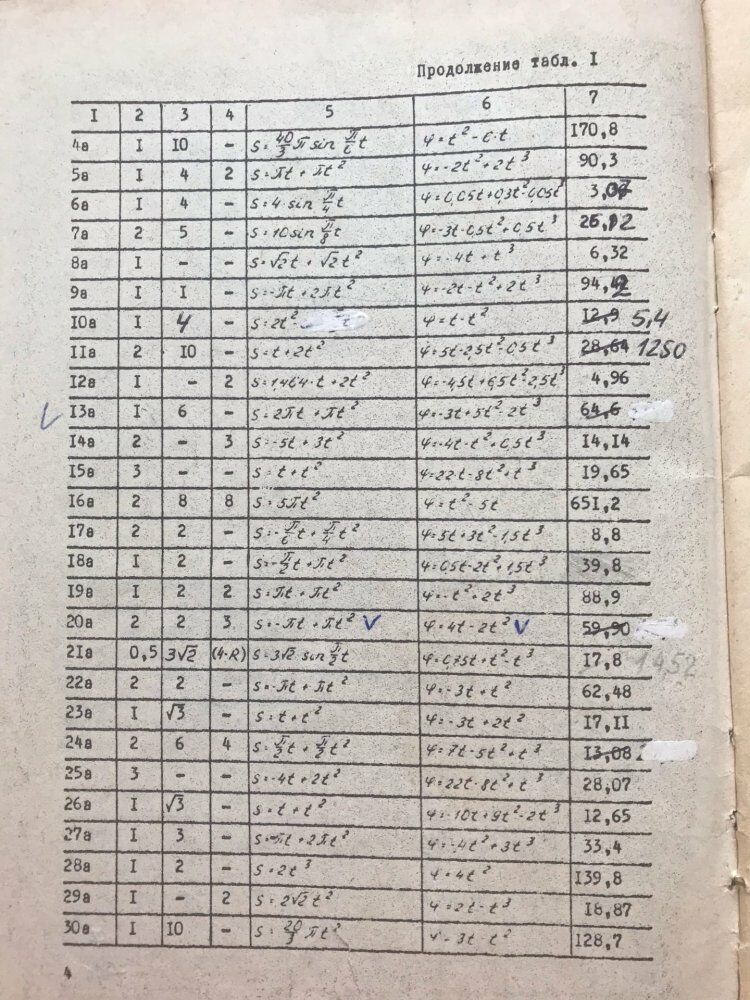 Продолжение табл. I
I 2 3 4 5 6 7
4а I IO - S=40/3 π sin π/6 t φ=t²-6·t I70,8
5а I 4 2 S=πt+πt² φ=-2t²+2t³ 90,3
6а I 4 - S=4·sin π/4 t φ=0,05t+0,3t²-0,05t³ 3,07
7а 2 5 - S=10sin π/8 t φ=-3t-0,5t²+0,5t³ 26,12
8а I - - S=√2t+√2t² φ=-4t+t³ 6,32
9а I I - S=-πt+2πt² φ=-2t-t²+2t³ 94,2
IOа I 4 - S=2t²- t φ=t-t² I2,9 5,4
IIа 2 IO - S=t+2t² φ=5t-2,5t²-0,5t³ 28,64 1250
I2а I - 2 S=1,464·t+2t² φ=-4,5t+6,5t²-2,5t³ 4,96
V I3а I 6 - S=2πt+πt² φ=-3t+5t²-2t³ 64,6
I4а 2 - 3 S=-5t+3t² φ=-4t-t²+0,5t³ I4,I4
I5а 3 - - S=t+t² φ=22t-8t²+t³ I9,65
I6а 2 8 8 S=5πt² φ=t²-5t 65I,2
I7а 2 2 - S=-π/6 t+π/4 t² φ=5t+3t²-1,5t³ 8,8
I8а I 2 - S=-π/2 t+πt² φ=0,5t-2t²+1,5t³ 39,8
I9а I 2 2 S=πt+πt² φ=-t²+2t³ 88,9
20а 2 2 3 S=-πt+πt² V φ=4t-2t² V 59,90
2Iа 0,5 3√2 (4-R) S=3√2 sin π/2 t φ=0,75t+t²-t³ I7,8 14,52
22а 2 2 - S=-πt+πt² φ=-3t+t² 62,48
23а I √3 - S=t+t² φ=-3t+2t² I7,II
24а 2 6 4 S=π/2 t+π/2 t² φ=7t-5t²+t³ I3,08
25а 3 - - S=-4t+2t² φ=22t-8t²+t³ 28,07
26а I √3 - S=t+t² φ=-10t+9t²-2t³ I2,65
27а I 3 - S=-πt+2πt² φ=-4t²+3t³ 33,4
28а I 2 - S=2t³ φ=4t² I39,8
29а I - 2 S=2√2t² φ=2t-t³ I8,87
30а I IO - S=20/3 πt² φ=3t-t² I28,7
4